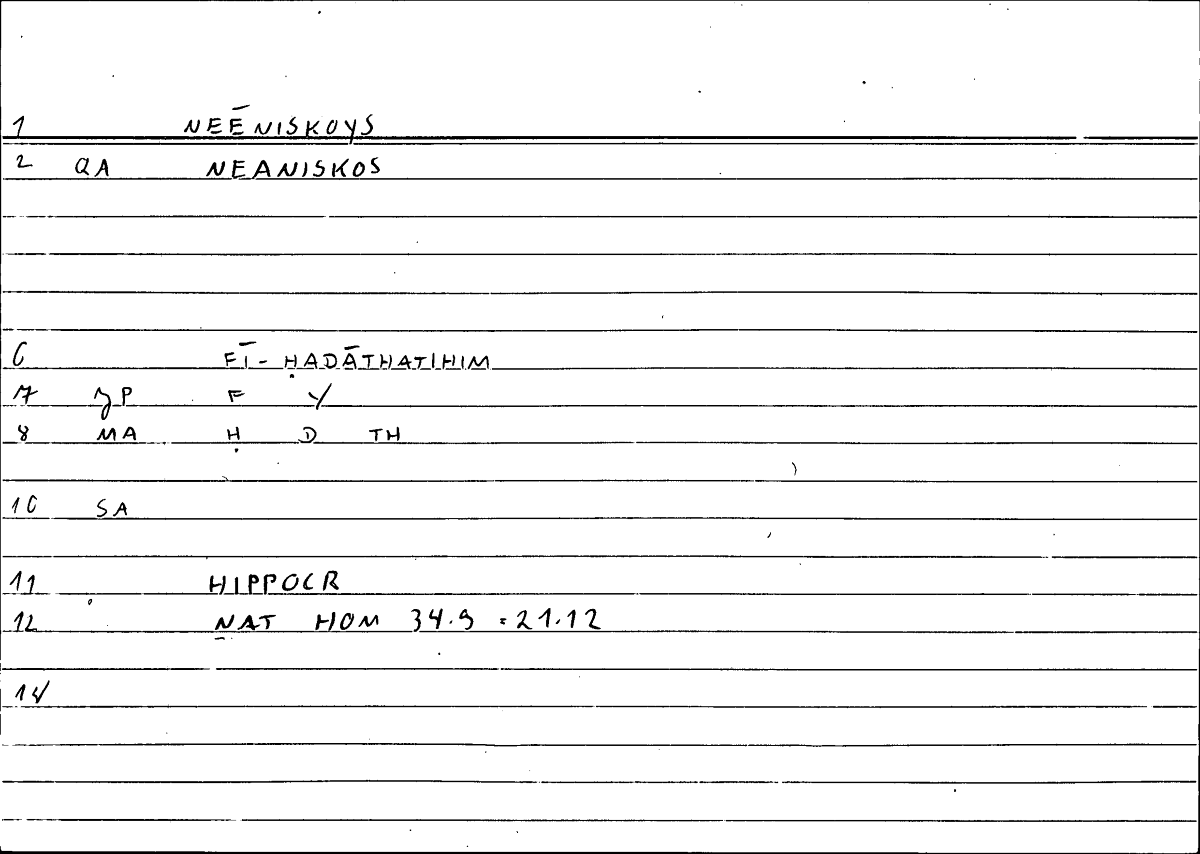 1 NEĒNISKOYS
2 QA NEANISKOS
6 FĪ-ḤADĀTHATIHIM
7 P F Y
8 MA Ḥ D TH
10 SA
11 HIPPOCR
12 NAT HOM 34.9 = 21.12
14